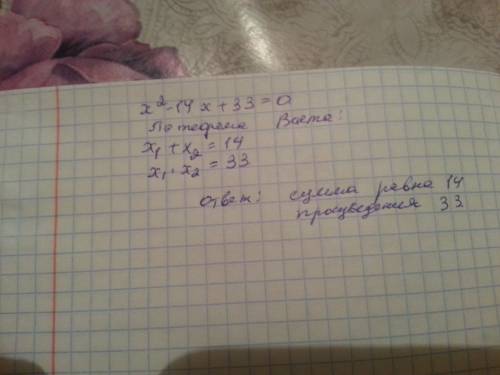 x² - 14x + 33 = 0
По теореме Виета:
x₁ + x₂ = 14
x₁ · x₂ = 33
ответ: сумма равна 14
произведения 33